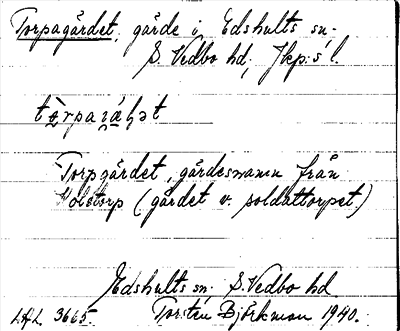 Torpagärdet, gärde i Edshults sn.
S. Vedbo hd, Jkp:s l.
Torpgärdet, gärdesnamn från
Holstorp (gärdet v. soldattorpet.)
Edshults sn. S. Vedbo hd
3665. Torsten Björkman 1940.